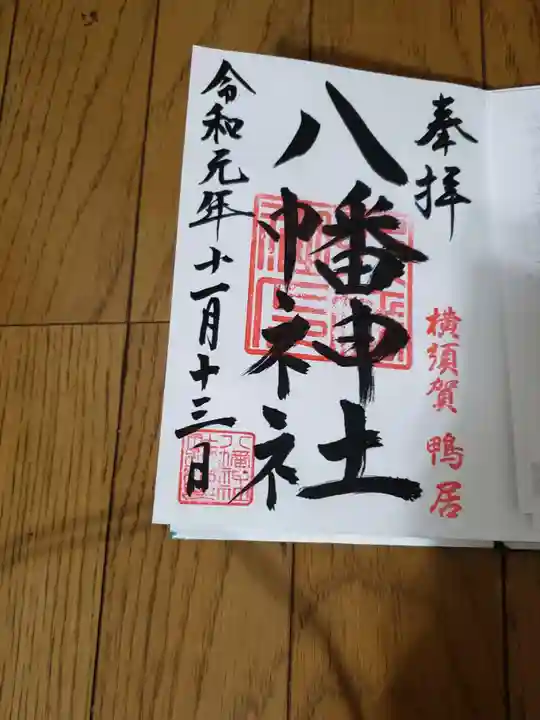 奉拝
横須賀 鴨居
八幡神社
令和元年十一月十三日
八幡神社